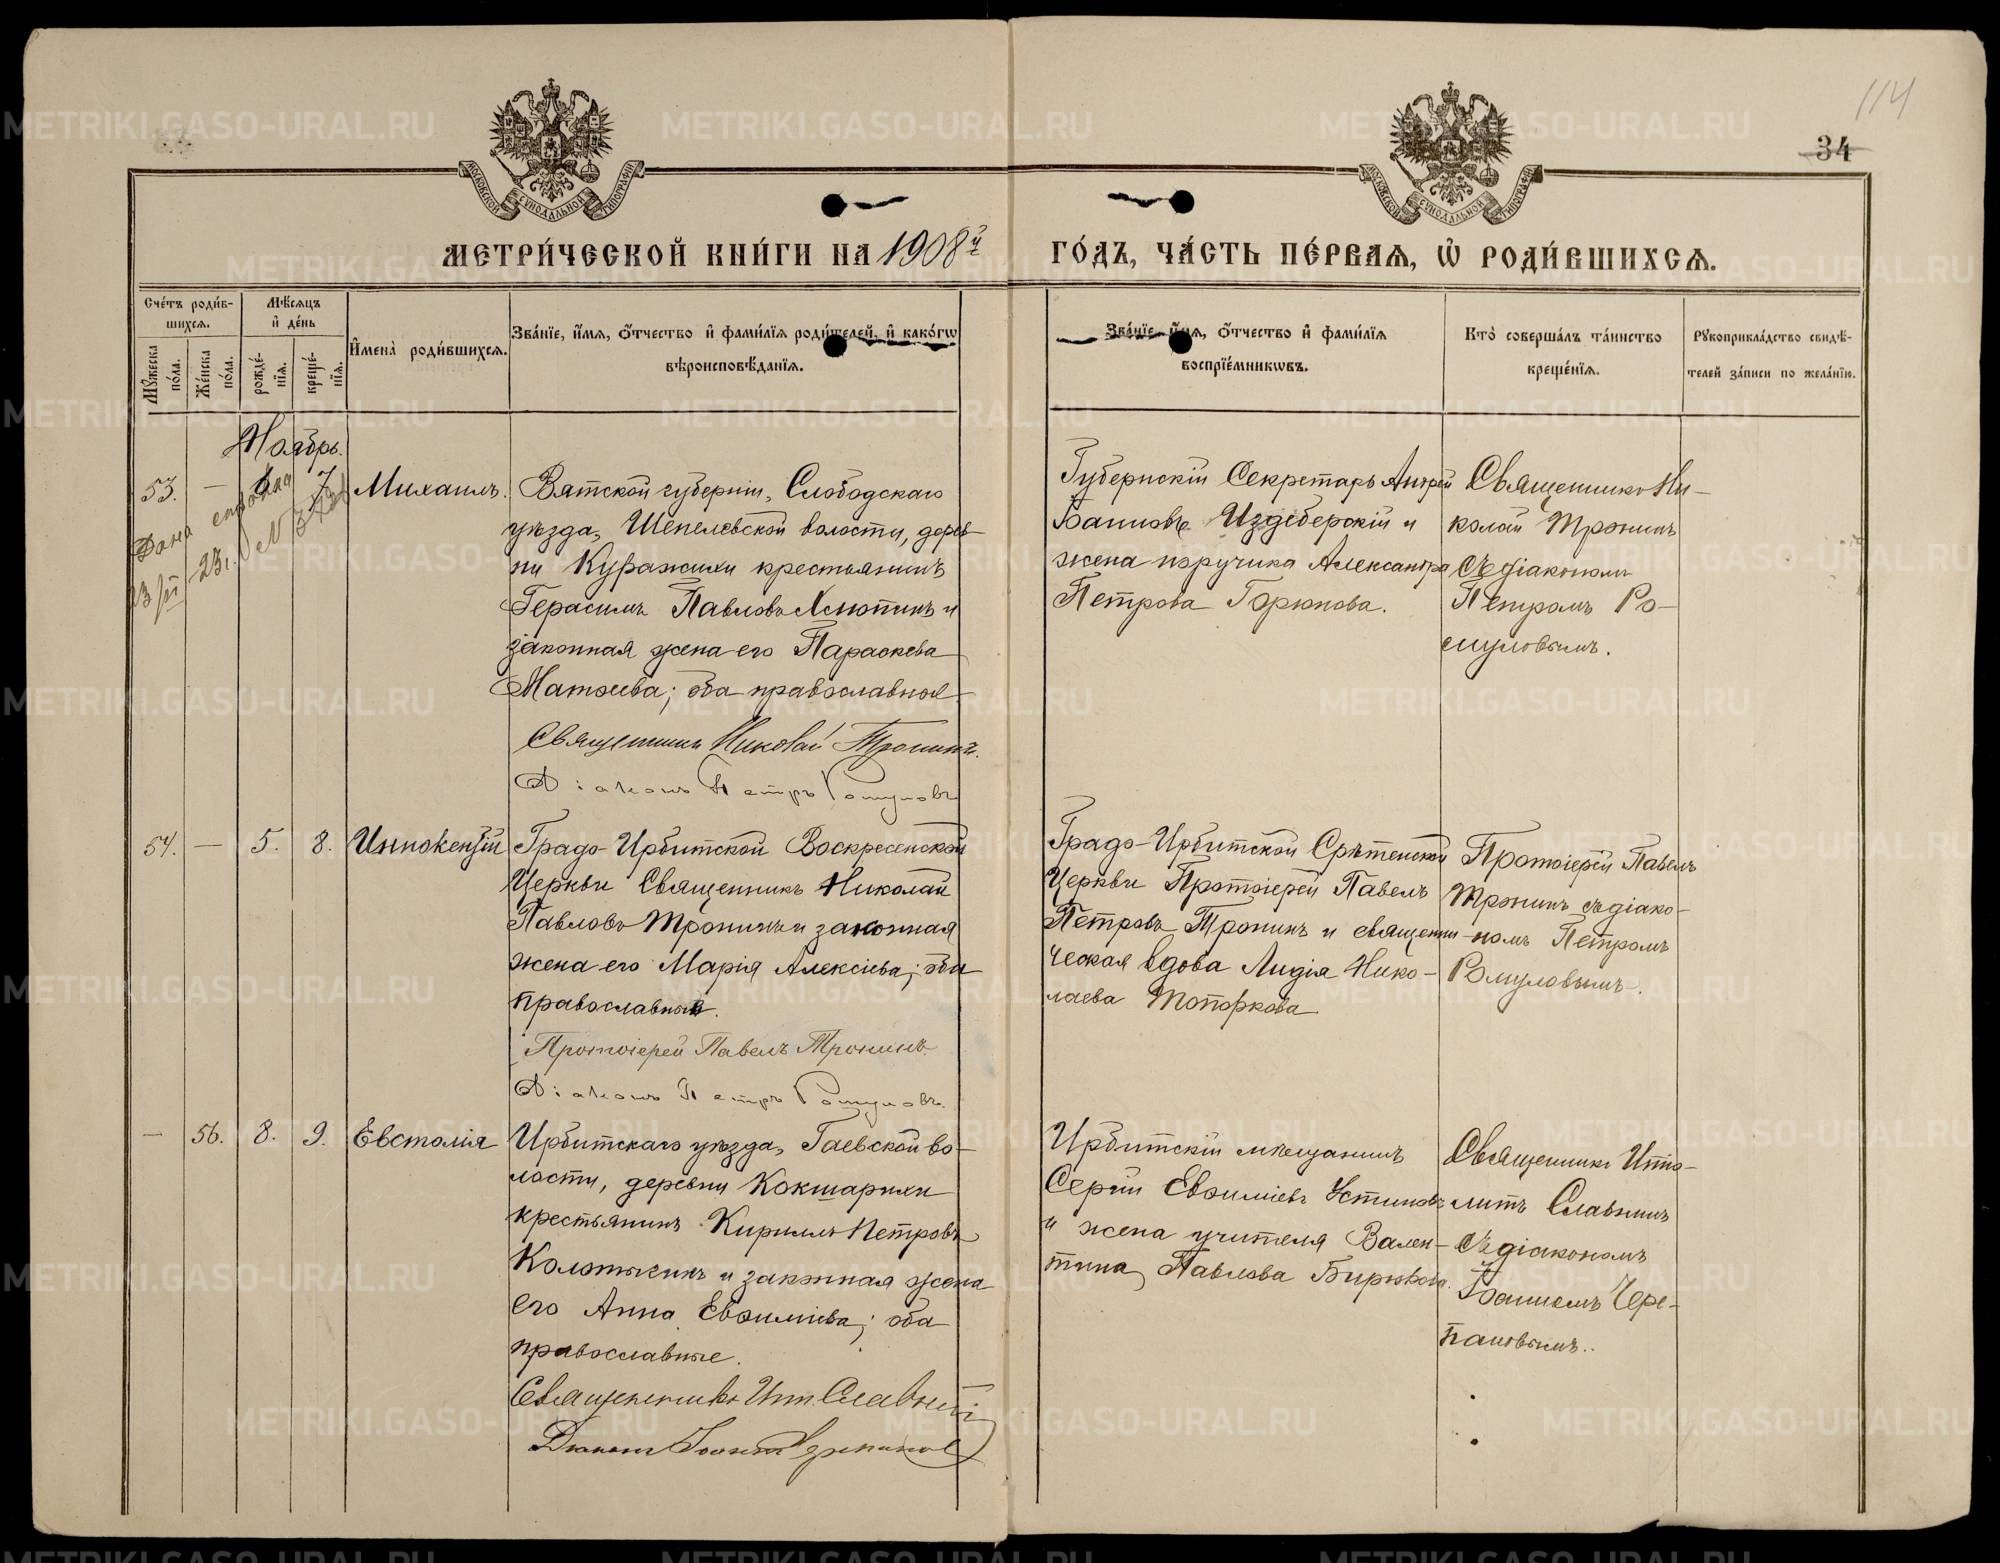 114
34
МОСКОВСКОЙ СУНОДАЛЬНОЙ ТИПОГРАФІИ
МОСКОВСКОЙ СУНОДАЛЬНОЙ ТИПОГРАФІИ
МЕТРИ́ЧЕСКОЙ КНИ́ГИ НА 1908й ГО́ДЪ, ЧА́СТЬ ПЕ́РВАѦ, Ѡ҆ РОДИ́ВШИХСѦ.
Сче́тъ роди́в-
шихсѧ.
Мꙋ́жеска по́ла.
Же́нска по́ла.
Мѣ́сѧцъ
и҆ де́нь
рожде́-
нїѧ.
креще́-
нїѧ.
И҆мена̀ роди́вшихсѧ.
Зва́нїе, и҆́мѧ, ѻ҆́тчество и҆ фами́лїѧ роди́телей, и҆ како́гѡ
вѣроисповѣ́данїѧ.
Зва́нїе, и҆́мѧ, ѻ҆́тчество и҆ фами́лїѧ
воспрїе́мникѡвъ.
Кто̀ соверша́лъ та́инство
креще́нїѧ.
Рꙋкоприкла́дство свидѣ́-
телей за́писи по жела́нїю.
Ноябрь.
53. — 6 7 Михаилъ.
Дана справка
23/III 23г. №
Вятской губерніи, Слободскаго
уѣзда, Шепелевской волости, дерев-
ни Куражихи крестьянинъ
Герасимъ Павловъ Хлюпинъ и
законная жена его Параскева
Матѳеева; оба православные
Священникъ Николай Тронинъ.
Діаконъ Петръ Ромуловъ
Губернскій Секретарь Андрей
Іоанновъ Издеберскій и
жена поручика Александра
Петрова Горюнова.
Священникъ Ни-
колай Тронинъ
съ діакономъ
Петромъ Ро-
муловымъ.
54. — 5. 8. Иннокентій
Градо-Ирбитской Воскресенской
Церкви Священникъ Николай
Павловъ Тронинъ и законная
жена его Марія Алексіева; оба
православные.
Протоіерей Павелъ Тронинъ
Діаконъ Петръ Ромуловъ.
Градо-Ирбитской Срѣтенской
Церкви Протоіерей Павелъ
Петровъ Тронинъ и священни-
ческая вдова Лидія Нико-
лаева Топоркова
Протоіерей Павелъ
Тронинъ съ діако-
номъ Петромъ
Ромуловымъ.
— 56. 8. 9. Евстолія
Ирбитскаго уѣзда, Гаевской во-
лости, деревни Кокшарихи
крестьянинъ Кириллъ Петровъ
и законная жена
его Анна Евѳиміева; оба
православные.
Священникъ Ип. Славнинъ
Діаконъ Іоаннъ Черепановъ
Ирбитскій мѣщанинъ
Сергій Евѳиміевъ Устиновъ
и жена учителя Вален-
тина Павлова Бирюкова.
Священникъ Иппо-
литъ Славнинъ
съ діакономъ
Іоанномъ Чере-
пановымъ.
METRIKI.GASO-URAL.RU